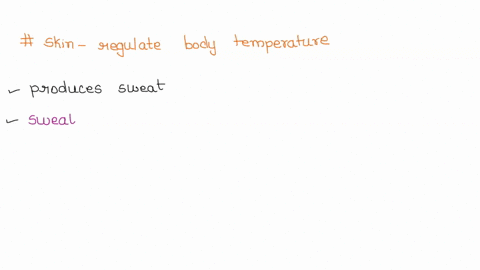 # skin - regulate body temperature
✓ produces sweat
✓ sweal